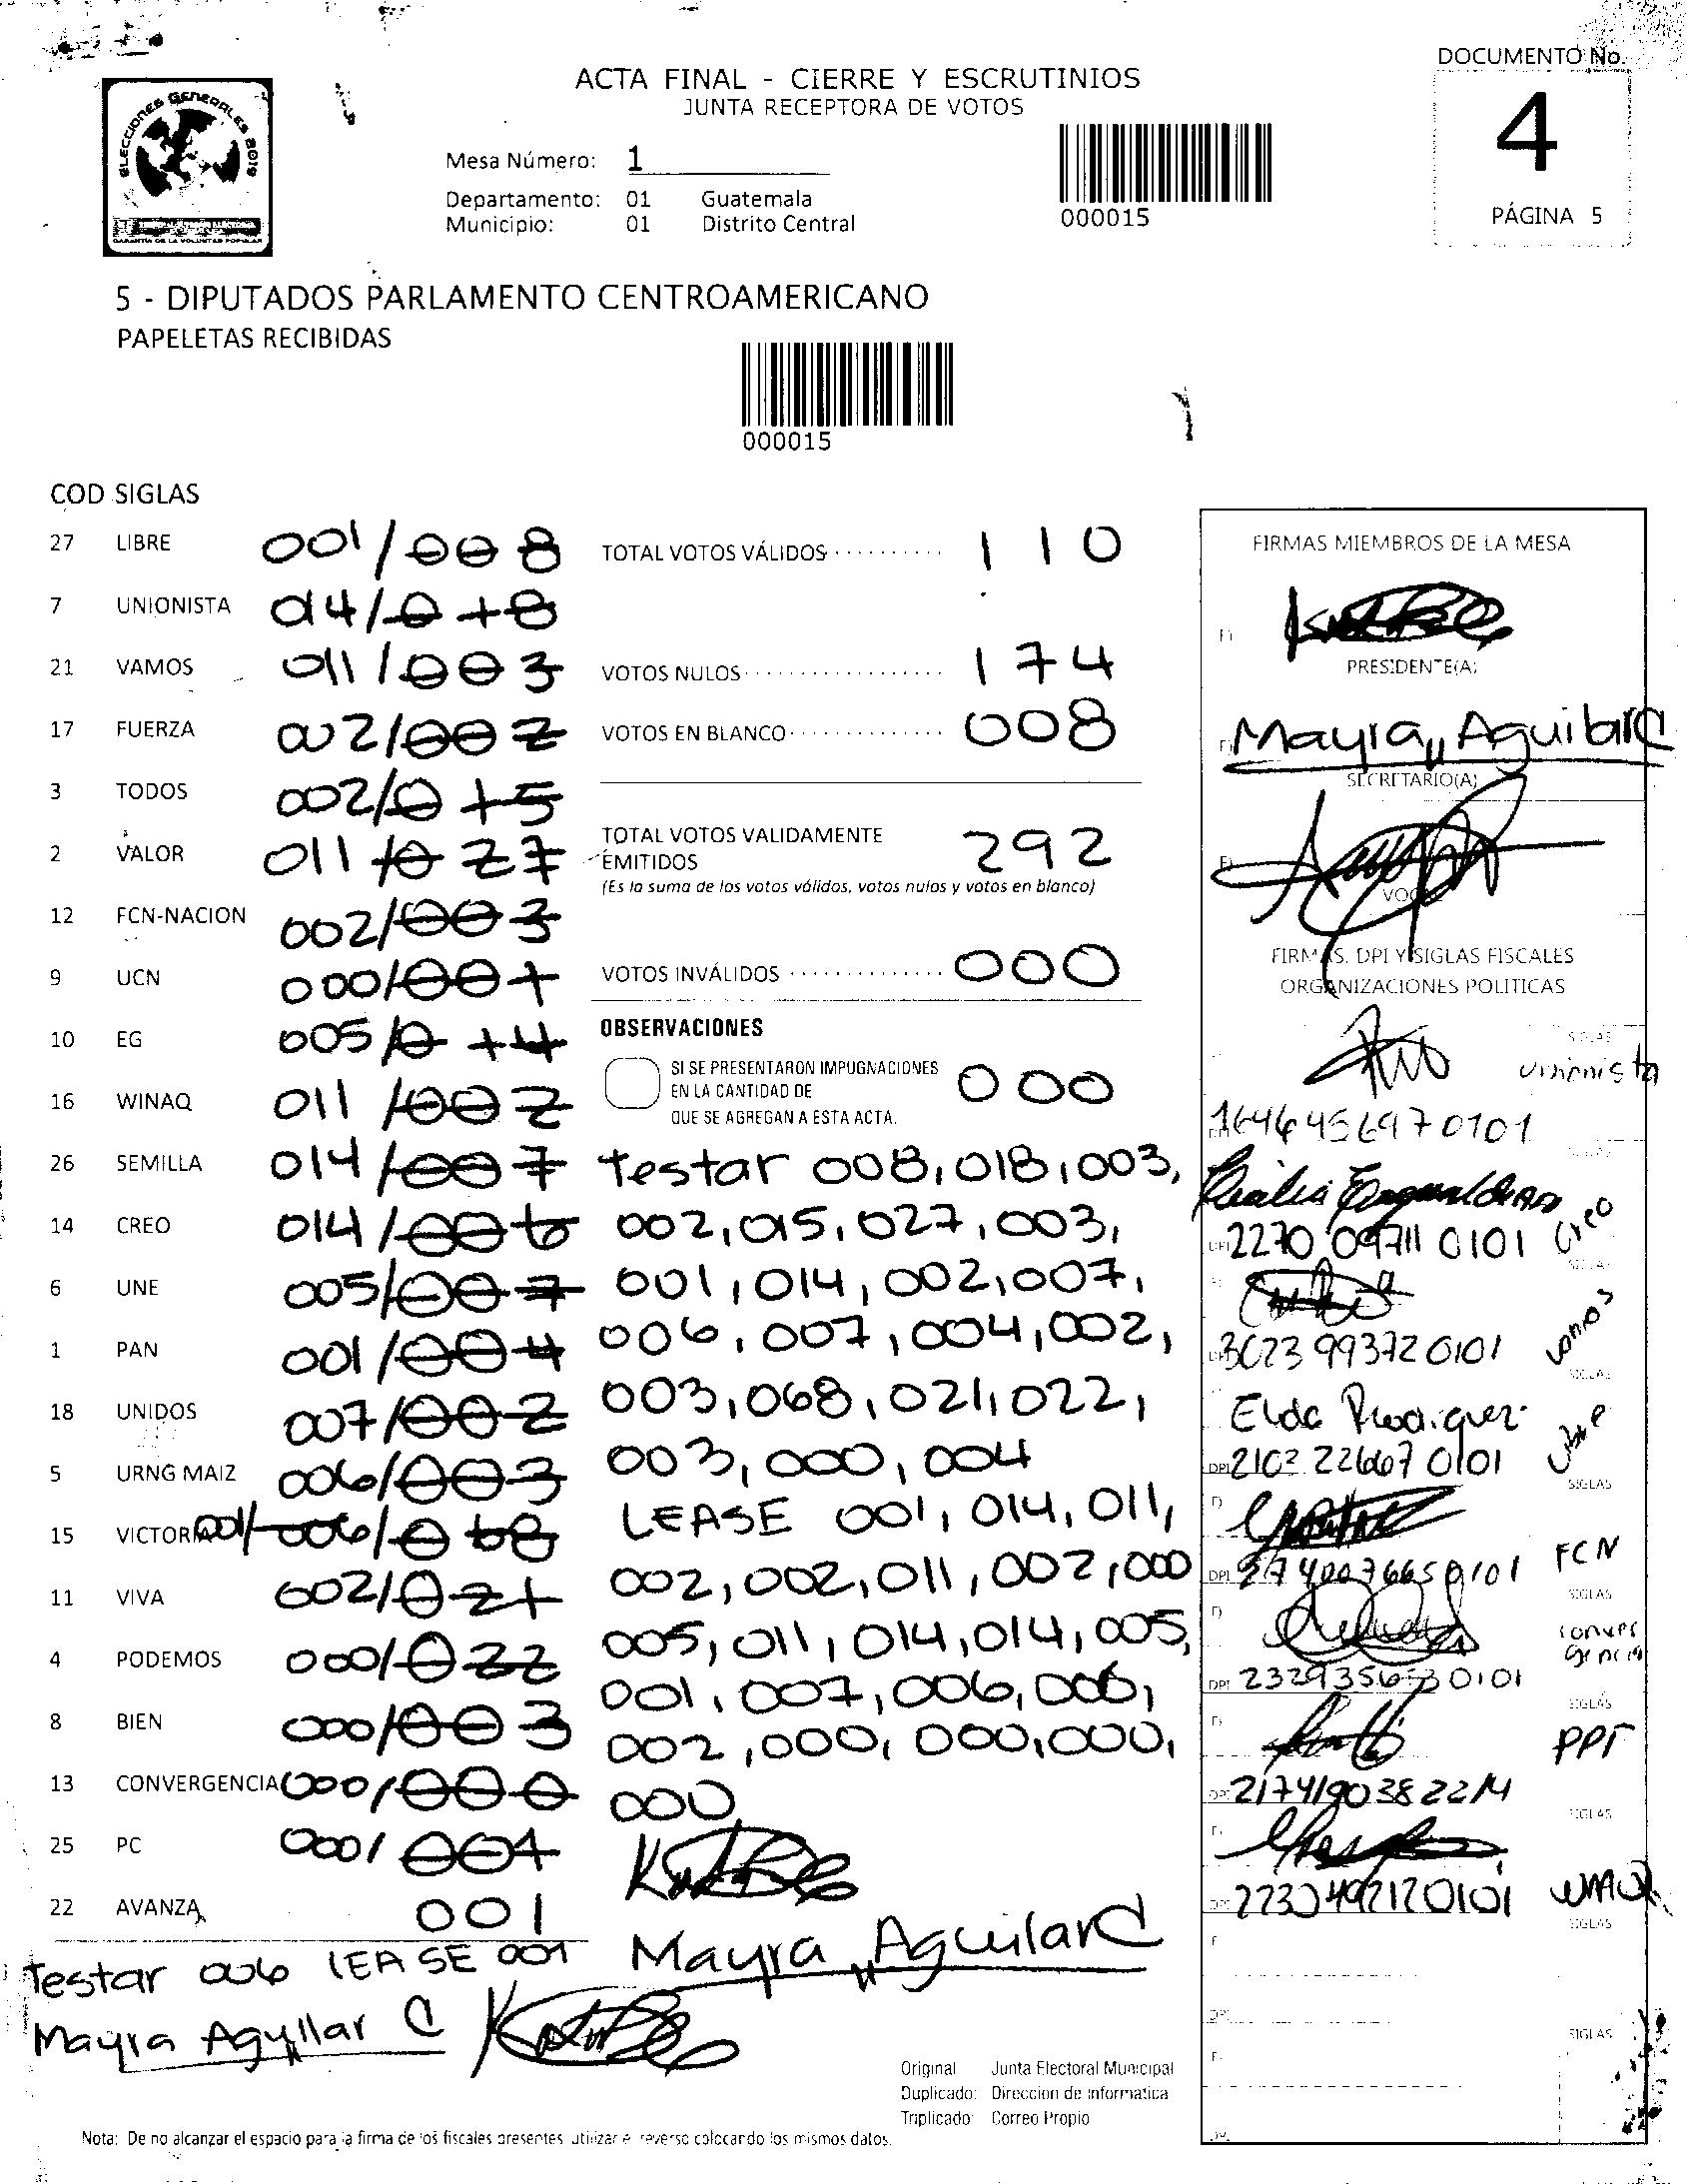 DOCUMENTO No.
ACTA FINAL - CIERRE Y ESCRUTINIOS
JUNTA RECEPTORA DE VOTOS
4
PÁGINA 5
ELECCIONES GENERALES 2019
GARANTÍA DE LA VOLUNTAD POPULAR
Mesa Número: 1
Departamento: 01 Guatemala
Municipio: 01 Distrito Central
000015
5 - DIPUTADOS PARLAMENTO CENTROAMERICANO
PAPELETAS RECIBIDAS
000015
COD SIGLAS
27 LIBRE 001/008
7 UNIONISTA 014/018
21 VAMOS 011/003
17 FUERZA 002/002
3 TODOS 002/015
2 VALOR 011/027
12 FCN-NACION 002/003
9 UCN 000/001
10 EG 005/014
16 WINAQ 011/002
26 SEMILLA 014/007
14 CREO 014/006
6 UNE 005/007
1 PAN 001/004
18 UNIDOS 007/002
5 URNG MAIZ 006/003
15 VICTORIA 001/006/068
11 VIVA 002/021
4 PODEMOS 000/022
8 BIEN 000/003
13 CONVERGENCIA 000/000
25 PC 000/004
22 AVANZA 001
Testar 006 LEASE 001
Mayra Aguilar C
TOTAL VOTOS VÁLIDOS 110
VOTOS NULOS 174
VOTOS EN BLANCO 008
TOTAL VOTOS VALIDAMENTE
EMITIDOS 292
(Es la suma de los votos válidos, votos nulos y votos en blanco)
VOTOS INVÁLIDOS 000
OBSERVACIONES
SI SE PRESENTARON IMPUGNACIONES
EN LA CANTIDAD DE 000
QUE SE AGREGAN A ESTA ACTA.
Testar 008,018,003,
002,015,027,003,
001,014,002,007,
006,007,004,002,
003,068,021,022,
003,000,004
LEASE 001,014,011,
002,002,011,002,000
005,011,014,014,005,
001,007,006,006,
002,000,000,000,
000
Mayra Aguilar C
FIRMAS MIEMBROS DE LA MESA
F)
PRESIDENTE(A)
Mayra Aguilar C
SECRETARIO(A)
F)
VOCAL
FIRMAS, DPI Y SIGLAS FISCALES
ORGANIZACIONES POLITICAS
SIGLAS
unionista
1646456970101
2270 09711 0101 Creo
SIGLAS
3023 99372 0101 vamos
SIGLAS
Elda Rodriguez
DPI 2102 22667 0101 Libre
SIGLAS
F)
DPI FCN
SIGLAS
F)
DPI 2329356530101
Convergencia
SIGLAS
F)
PPT
2174190382214
SIGLAS
F.
2230492120101 WINAQ
SIGLAS
F
DPI
SIGLAS
F.
DPI
Original Junta Electoral Municipal
Duplicado: Direccion de Informatica
Triplicado Correo Propio
Nota: De no alcanzar el espacio para la firma de los fiscales presentes utilizar el reverso colocando los mismos datos.